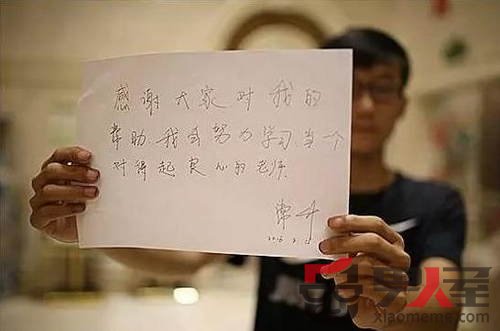 感谢大家对我的
帮助.我会努力学习.当个
对得起良心的老师.
常升
xiaomeme.com